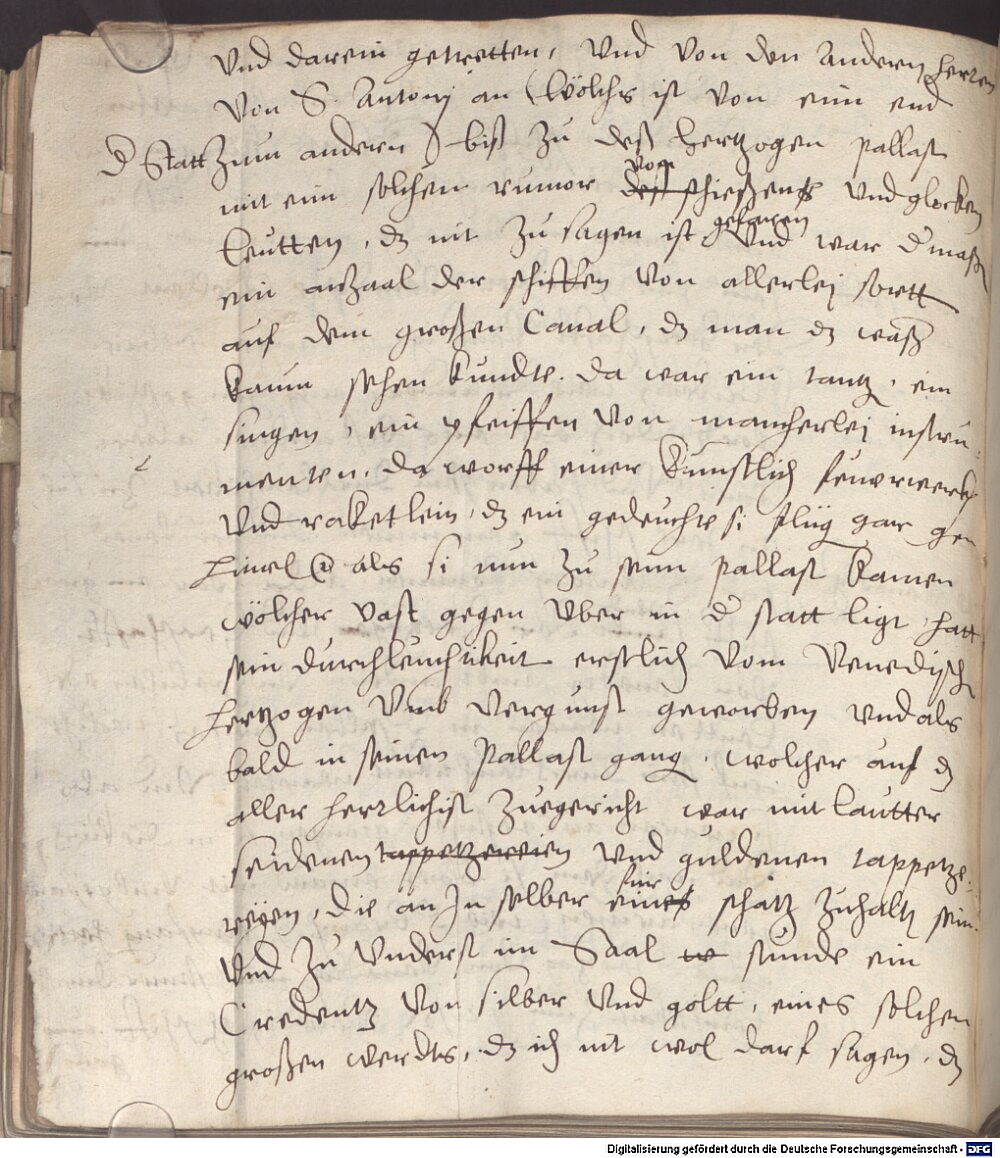 Vnd darein getretten, Vnd von den andern herren
Von S. Antonj an (wölchs ist von eim end
d Statt zum andern) biß zu deß hertzogen pallast
mit eim solchen rumor deß vom schießens Vnd glocken
leutten, dz nit zu sagen ist gefaren Vnd war dmaßen
ein anzaal der schiffen von allerlej sortt
auf dem großen Canal, dz man dz waßer
kaum sehen kundte. da war ein tantz, ein
singen, ein pfeiffen von mancherlej instru-
menten. da worff einer künstlich feuwrwerkh
Vnd raketlein, dz ein gedeuchte si flüg gar gen
himel als si nun zu seim pallast kamen
wölcher vast gegen vber in d statt ligt hatt
sein durchleuchtikeit erstlich vom Venedisch
hertzogen Vmb vergunst geworben Vnd als
bald in seinen pallast gang, wolcher auf dz
aller herrlichist zuegericht war mit lautter
seidenen tappetzereien Vnd guldenen tappetze-
reyen, die an In selber eines für schatz zuhaltn sein.
Vnd zu Vnderst im Saal stunde ein
Credentz von silber Vnd goltt, eines solchen
großen werdts, dz ich nit wol darf sagen, dz
Digitalisierung gefördert durch die Deutsche Forschungsgemeinschaft - DFG